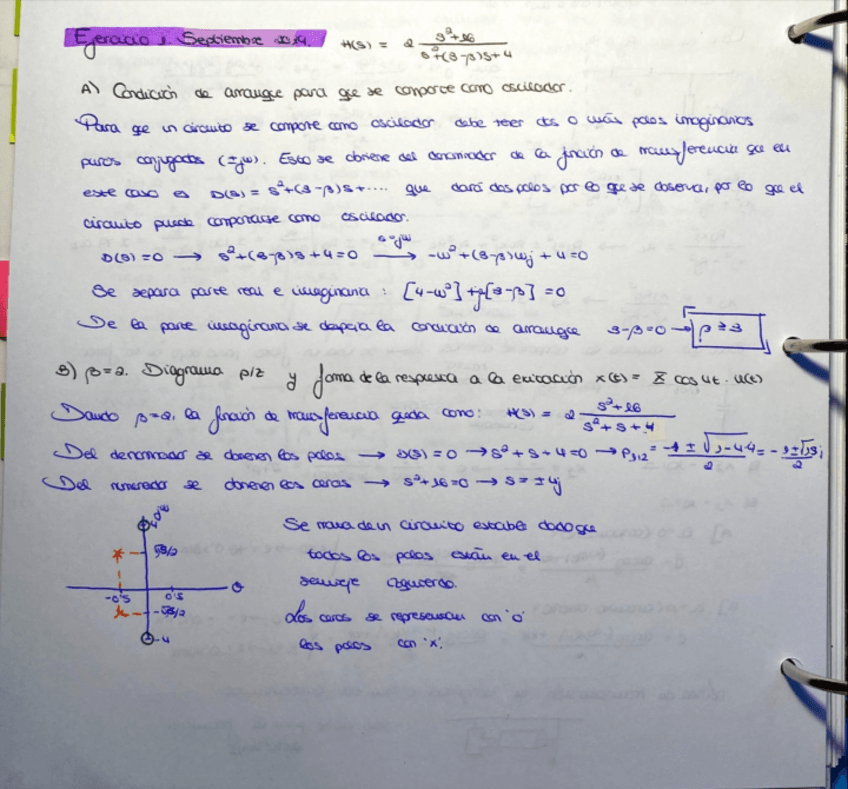 Ejercicio 1. Septiembre 2014. H(s) = 2 (s²+16)/(s²+(3-β)s+4)
A) Condición de arranque para que se comporte como oscilador.
Para qe un circuito se comporte como oscilador debe tener dos o más polos imaginarios
puros conjugados (±jω). Esto se obtiene del denominador de la función de transferencia que en
este caso es D(s) = s²+(3-β)s+.... que dará dos polos por lo que se observa, por lo que el
circuito puede comportarse como oscilador.
D(s)=0 → s²+(3-β)s+4=0 →(s=jω) -ω²+(3-β)ωj+4=0
Se separa parte real e imaginaria : [4-ω²]+j[3-β]=0
De la parte imaginaria se despeja la condición de arranque 3-β=0 → β≥3
B) β=2. Diagrama p/z y forma de la respuesta a la excitación x(t) = cos4t · u(t)
Dando β=2, la función de transferencia queda como: H(s) = 2 (s²+16)/(s²+s+4)
Del denominador se obtienen los polos → D(s)=0 → s²+s+4=0 → P1,2 = (-1±√(1-4·4))/2 =
Del numerador se obtienen los ceros → s²+16=0 → s=±4j
jω
4
Se trata de un circuito estable dado que
todos los polos están en el
semieje izquierdo.
-0'5 0'5 σ
Los ceros se representan con 'o'
-4
los polos con 'x'.